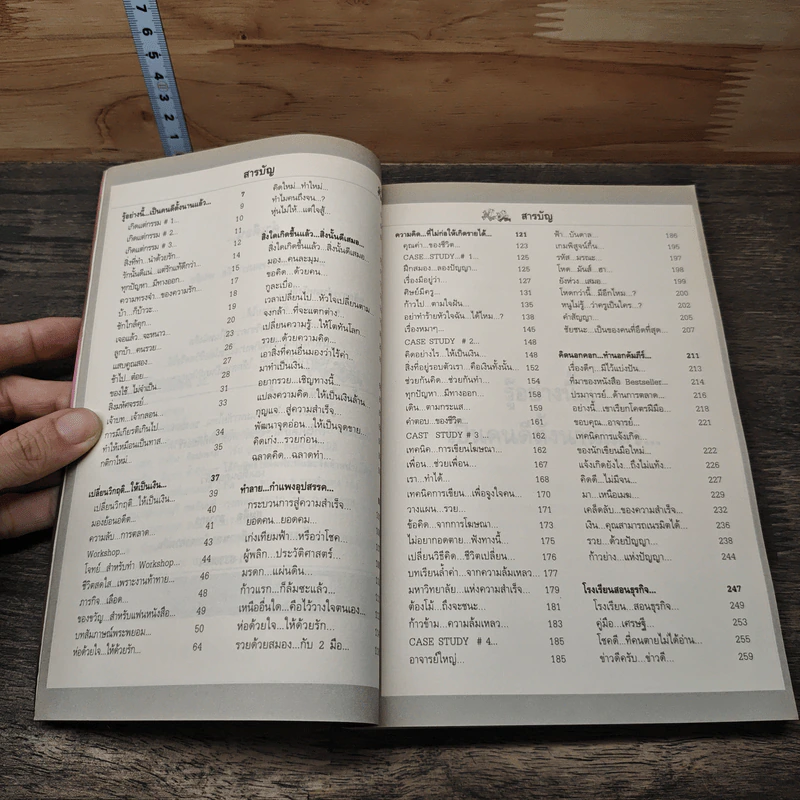 7
6
5
4
3
2
1
สารบัญ
รู้อย่างนี้...เป็นคนดีตั้งนานแล้ว... 7
เกิดแต่กรรม # 1... 9
เกิดแต่กรรม # 2... 10
เกิดแต่กรรม # 3... 11
สิ่งที่ทำ...นำด้วยรัก... 12
รักนั้นดีแน่...แต่รักแท้ดีกว่า... 14
ทุกปัญหา...มีทางออก... 15
ความทรงจำ...ของความรัก... 17
บ้า...ก็บ้าวะ... 18
ชักใกล้คุก... 19
เจอแล้ว...จะหนาว... 20
ลูกบ้า...คนรวย... 23
แสบคูณสอง... 26
ช้าไป...ต๋อย... 27
ของใช้...ไม่จำเป็น... 28
สิ่งมหัศจรรย์... 31
เจ้าบท...เจ้ากลอน... 33
การมีเกียรติเกินไป...
ทำให้เหมือนเป็นทาส... 34
กติกาใหม่... 35
เปลี่ยนวิกฤติ...ให้เป็นเงิน... 37
เปลี่ยนวิกฤติ...ให้เป็นเงิน... 39
มองย้อนอดีต... 40
ความลับ...การตลาด... 41
Workshop... 43
โจทย์...สำหรับทำ Workshop... 44
ชีวิตสดใส...เพราะงานท้าทาย... 46
ภารกิจ...เลือด... 48
ของขวัญ...สำหรับแฟนหนังสือ... 49
บทสัมภาษณ์พระพยอม... 50
ห่อด้วยใจ...ให้ด้วยรัก... 64
คิดใหม่...ทำใหม่...
ทำไมคนถึงจน...?
หุ่นไม่ให้...แต่ใจสู้...
สิ่งใดเกิดขึ้นแล้ว...สิ่งนั้นดีเสมอ...
สิ่งใดเกิดขึ้นแล้ว...สิ่งนั้นดีเสมอ...
มอง...คนละมุม...
ขอคิด...ด้วยคน...
กูละเบื่อ...
เวลาเปลี่ยนไป...หัวใจเปลี่ยนตาม
จงกล้า...ที่จะแตกต่าง...
เปลี่ยนความรู้...ให้โดทันโลก
รวย...ด้วยความคิด...
เอาสิ่งที่คนอื่นมองว่าไร้ค่า...
มาทำเป็นเงิน...
อยากรวย...เชิญทางนี้...
แปลงความคิด...ให้เป็นเงินล้าน
กุญแจ...สู่ความสำเร็จ...
พัฒนาจุดอ่อน...ให้เป็นจุดขาย...
คิดเก่ง...รวยก่อน...
ฉลาดคิด...ฉลาดทำ...
ทำลาย...กำแพงอุปสรรค...
กระบวนการสู่ความสำเร็จ...
ยอดคน...ยอดคม...
เก่งเทียมฟ้า...หรือว่าโชค...
ผู้พลิก...ประวัติศาสตร์...
มรดก...แผ่นดิน...
ก้าวแรก...ก็ล้มซะแล้ว...
เหนืออื่นใด...คือไว้วางใจตนเอง...
ห่อด้วยใจ...ให้ด้วยรัก...
รวยด้วยสมอง...กับ 2 มือ...
สารบัญ
ความคิด...ที่ไม่ก่อให้เกิดรายได้... 121
คุณค่า...ของชีวิต... 123
CASE...STUDY...# 1... 125
ฝึกสมอง...ลองปัญญา... 125
เรื่องมีอยู่ว่า... 127
ศิษย์มีครู... 131
ก้าวไป...ตามใจฝัน... 135
อย่าทำร้ายหัวใจฉัน...ได้ไหม...? 138
เรื่องหมาๆ... 145
CASE STUDY # 2... 148
คิดอย่างไร...ให้เป็นเงิน... 148
สิ่งที่อยู่รอบตัวเรา...คือเงินทั้งนั้น... 152
ช่วยกันคิด...ช่วยกันทำ... 154
ทุกปัญหา...มีทางออก... 158
เดิน...ตามกระแส... 159
คำตอบ...ของชีวิต... 161
CAST STUDY # 3 ... 162
เทคนิค...การเขียนโฆษณา... 162
เพื่อน...ช่วยเพื่อน... 167
เรา...ทำได้... 168
เทคนิคการเขียน...เพื่อจูงใจคน... 170
วางแผน...รวย... 171
ข้อคิด...จากการโฆษณา... 173
ไม่อยากอดตาย...ฟังทางนี้... 175
เปลี่ยนวิธีคิด...ชีวิตเปลี่ยน... 176
บทเรียนล้ำค่า...จากความล้มเหลว... 177
มหาวิทยาลัย...แห่งความสำเร็จ... 179
ต้องโม้...ถึงจะชนะ... 181
ก้าวข้าม...ความล้มเหลว... 183
CASE STUDY # 4... 185
อาจารย์ใหญ่... 185
ฟ้า...บันดาล... 186
เกมพิสูจน์กึ๋น... 195
รหัส...มรณะ... 197
โหด...มันส์...ฮา... 198
ยังห่วง...เสมอ... 199
โหดกว่านี้...มีอีกไหม...? 200
หนูไม่รู้...ว่าครูเป็นใคร...? 202
คำสัญญา... 205
ชัยชนะ...เป็นของคนที่อึดที่สุด... 207
คิดนอกคอก...ทำนอกคัมภีร์... 211
เรื่องดีๆ...มีไว้แบ่งปัน... 213
ที่มาของหนังสือ Bestseller... 214
ปรมาจารย์...ด้านการตลาด... 216
อย่างนี้...เขาเรียกโคตรฝีมือ... 218
ขอบคุณ...อาจารย์... 221
เทคนิคการแจ้งเกิด...
ของนักเขียนมือใหม่... 222
แจ้งเกิดยังไง...ถึงไม่แท้ง... 226
คิดดี...ไม่มีจน... 227
มา...เหนือเมฆ... 229
เคล็ดลับ...ของความสำเร็จ... 232
เงิน...คุณสามารถเนรมิตได้... 236
รวย...ด้วยปัญญา... 238
ก้าวย่าง...แห่งปัญญา... 244
โรงเรียนสอนธุรกิจ... 247
โรงเรียน...สอนธุรกิจ... 249
คู่มือ...เศรษฐี... 253
โชคดี...ที่คนตายไม่ได้อ่าน... 255
ข่าวดีครับ...ข่าวดี... 259